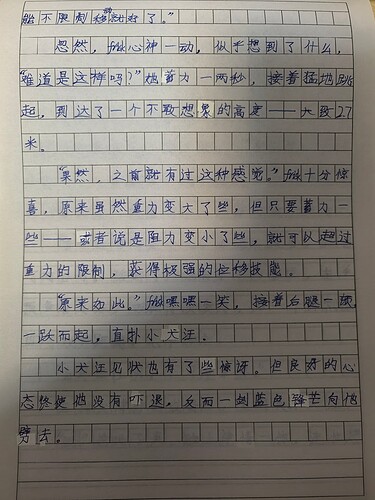 能不限制移就好了。"
忽然，他心神一动，似乎想到了什么，
"难道是这样吗？"他蓄力一两秒，接着猛地跳
起，到达了一个不敢想象的高度——大致2.7
米。
"果然，之前就有过这种感觉。"他十分惊
喜，原来虽然重力变大了些，但只要蓄力一
些——或者说是阻力变小了些，就可以超过
重力的限制，获得极强的位移技能。
"原来如此。"他嘿嘿一笑，接着后腿一蹬，
一跃而起，直扑小犬汪。
小犬汪见状也有了些惊讶。但良好的心
态终使他没有吓退，反而一剑蓝色锋芒向他
劈去。